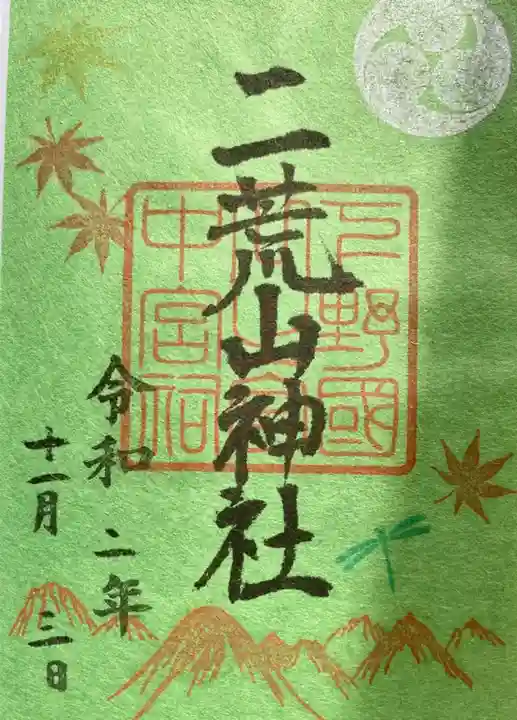 二荒山神社
下野國
中宮祠
令和二年
十一月三日